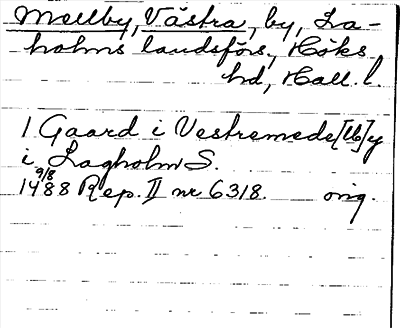 Mellby, Västra, by, La-
holms landsförs., Höks
hd, Hall. l.
1 Gaard i Vestremede[lb]y
i Lagholm S.
9/8
1488 Rep. II nr 6318. orig.